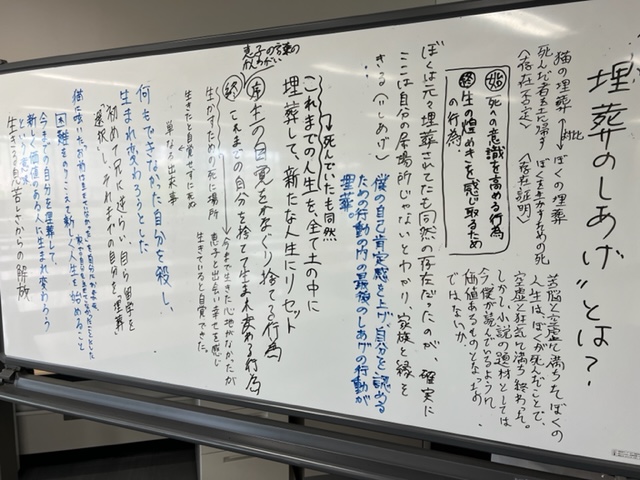 "埋葬のしあげ"とは?
猫の埋葬 ⇔ ぼくの埋葬
対比
死んだ者を土に帰す ぼくを生かすための死
〈存在否定〉 〈存在証明〉
苦悩と空虚に満ちたぼくの
人生は、ぼくが死んだことで、
空虚と狂気に満ち終わった。
しかし、小説の題材としては
今僕が語っているように、
価値あるものとなったの
ではないか。
始 死への意識を高める行為
終 生の煌めきを感じ取るため
の行為
ぼくは元々埋葬されても同然の存在だったのが、確実に
ここは自分の居場所じゃないとわかり、家族と縁を
きる(=しあげ)
僕の自己肯定感を上げ、自分を認める
ための行動の内の最後のしあげの行動が
埋葬。
死んでいたも同然
これまでの人生を、全て土の中に
埋葬して、新たな人生にリセット
恵子の言葉の
生の自覚をかなぐり捨てる行為
終 これまでの自分を捨てて生まれ変わる行為
今まで生きた心地がなかったが
恵子と出会い幸せを感じ
生きていると自覚できた。
生かすための死に場所
生きたと自覚せずに死ぬ
単なる出来事
何もできなかった自分を殺し、
生まれ変わろうとした
初めて兄に逆らい、自ら留学を
選択し、それまでの自分を「埋葬」
困難をのりこえて新しく人生を始めること
今までの自分を埋葬して、
新しく価値のある人に生まれ変わろう
という意味
生きる息苦しさからの解放